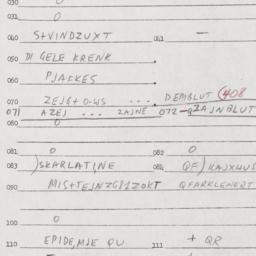 030 0
031 0
040 S+VINDZUXT 041 —
050 DI GELE KRENK
060 PJACKES
070 ZEJG+O-WS ... DEMBLUT (408
071 AZEJ ... ZAJNE 072 -QZAJNBLUT
080 0
081 0 082 0
083 )SKARLATINE 084 QF) KAJXHUS
090 MIS+TEJNZGIZOKT QFARKLENERT
100 0
110 EPIDE,MJE QU 111 + QR